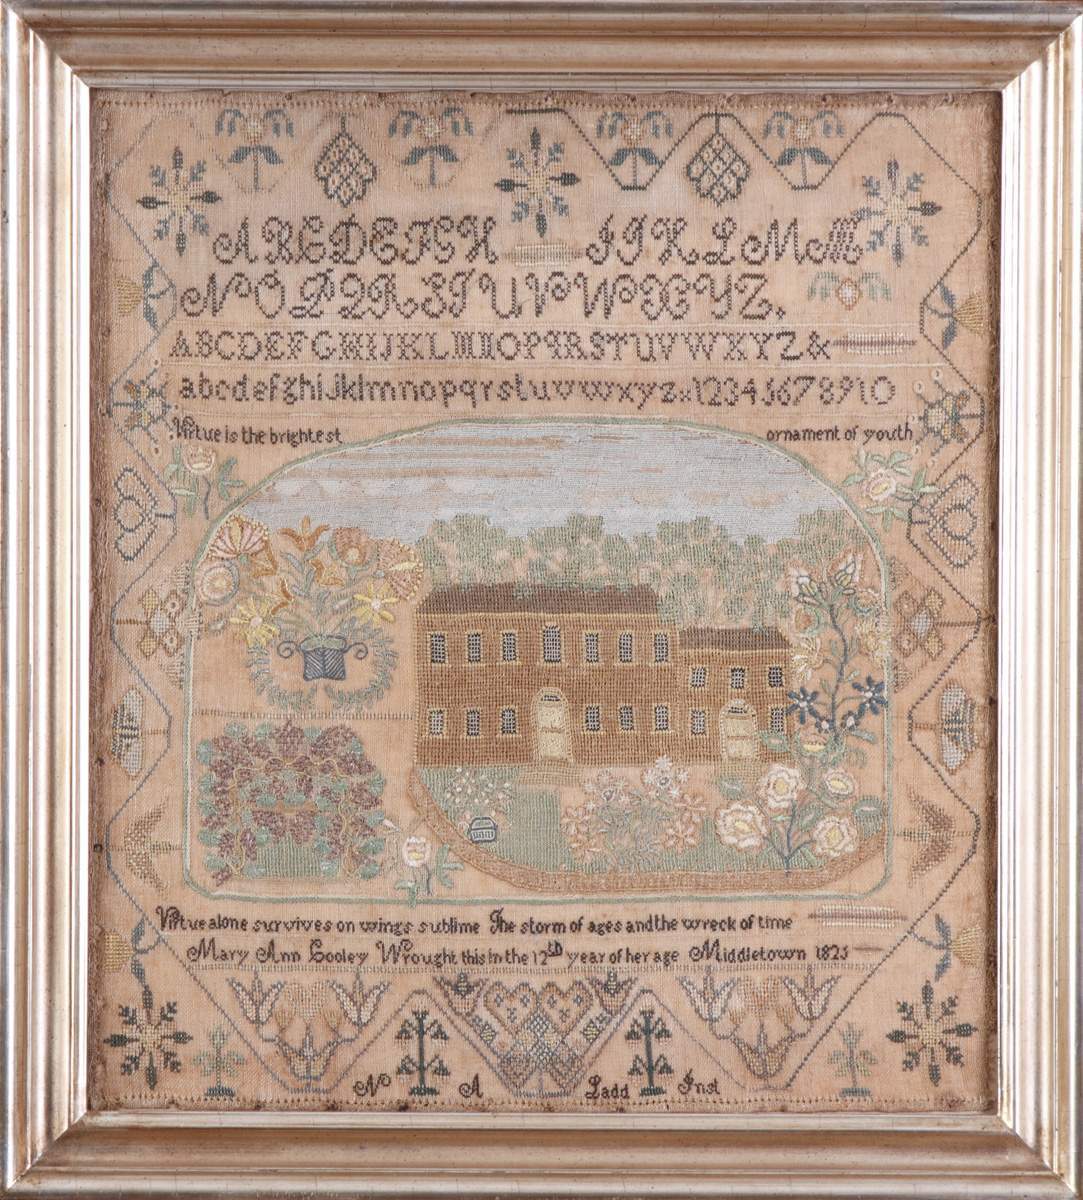 A B C D E F G H I J K L M
N O P Q R S T U V W X Y Z.
ABCDEFGHIJKLMNOPQRSTUVWXYZ&
abcdefghijklmnopqrstuvwxyz:12345678910
Virtue is the brightest ornament of youth
Virtue alone survives on wings sublime The storm of ages and the wreck of time
Mary Ann Cooley Wrought this in the 12th year of her age Middletown 1825
N A Ladd Inst